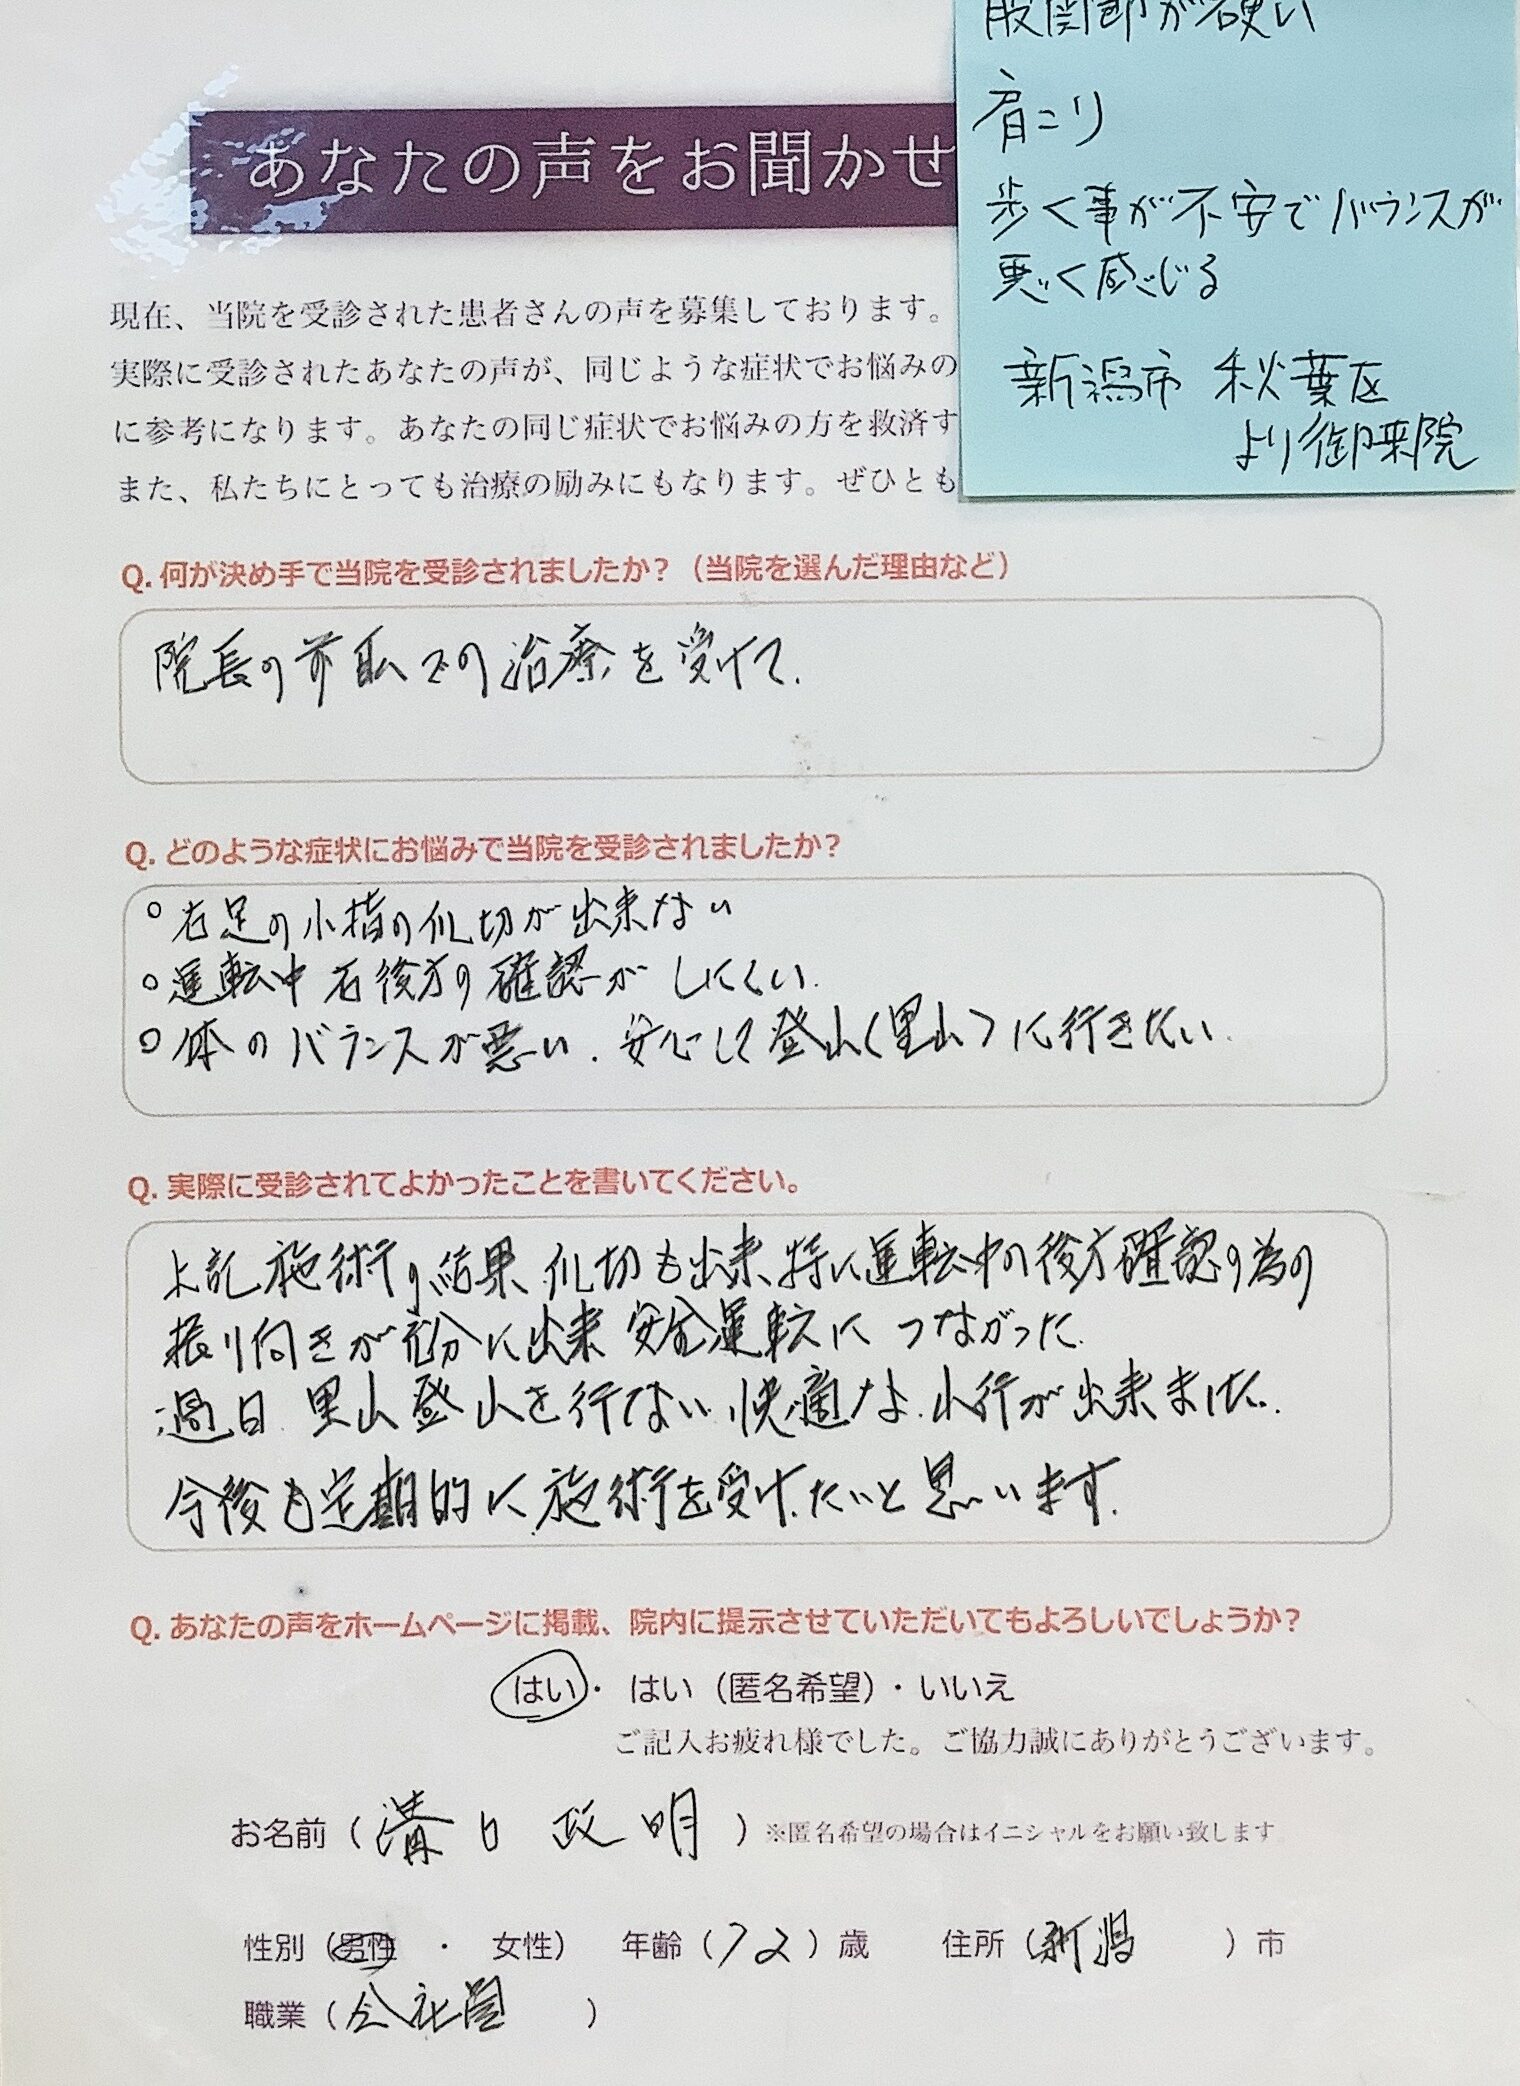 股関節が硬い
肩こり
歩く事が不安でバランスが
悪く感じる
新潟市 秋葉区
より御来院
あなたの声をお聞かせ
現在、当院を受診された患者さんの声を募集しております。
実際に受診されたあなたの声が、同じような症状でお悩みの
に参考になります。あなたの同じ症状でお悩みの方を救済す
また、私たちにとっても治療の励みにもなります。ぜひとも
Q. 何が決め手で当院を受診されましたか?（当院を選んだ理由など）
院長の前職での治療を受けて.
Q. どのような症状にお悩みで当院を受診されましたか?
○右足の小指の爪切が出来ない
○運転中右後方の確認がしにくい.
○体のバランスが悪い. 安心して登山(里山)に行きたい.
Q. 実際に受診されてよかったことを書いてください。
上記施術の結果 爪切も出来 特に運転中の後方確認の為の
振り向きが充分に出来 安全運転につながった.
過日 里山登山を行ない 快適な 山行が出来ました.
今後も定期的に施術を受けたいと思います.
Q. あなたの声をホームページに掲載、院内に提示させていただいてもよろしいでしょうか?
はい・ はい（匿名希望）・いいえ
ご記入お疲れ様でした。ご協力誠にありがとうございます。
お名前（溝口 政明）※匿名希望の場合はイニシャルをお願い致します
性別（男性 ・ 女性） 年齢（72）歳 住所（新潟 ）市
職業（会社員 ）